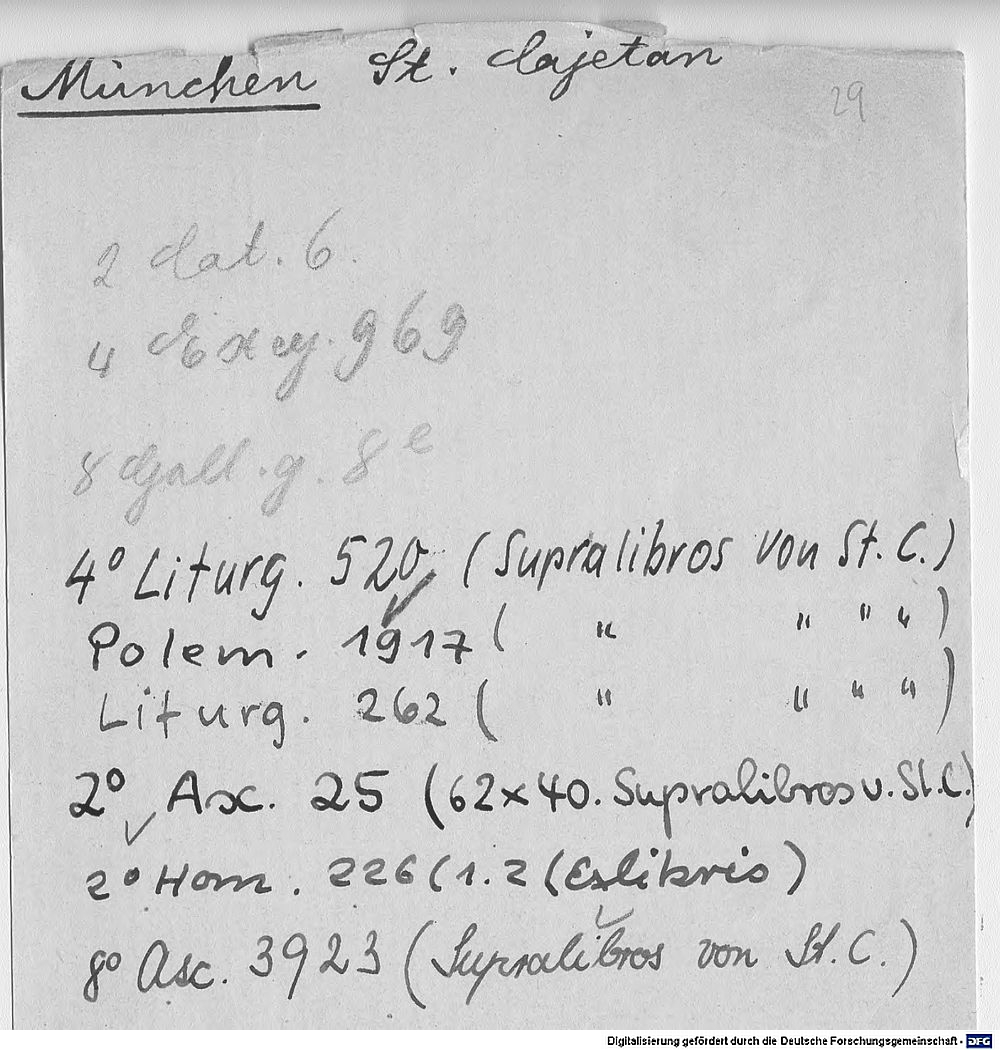 München St. Cajetan
29
2 Cat. 6.
4 Exeg. 969
8 Gall. g. 8 e
4° Liturg. 520 (Supralibros von St. C.)
Polem. 1917 ( " " " " )
Liturg. 262 ( " " " " )
2° Asc. 25 (62x40. Supralibros v. St. C.)
2° Hom. 226 (1.2 (Exlibris)
8° Asc. 3923 (Supralibros von St. C.)
Digitalisierung gefördert durch die Deutsche Forschungsgemeinschaft - DFG